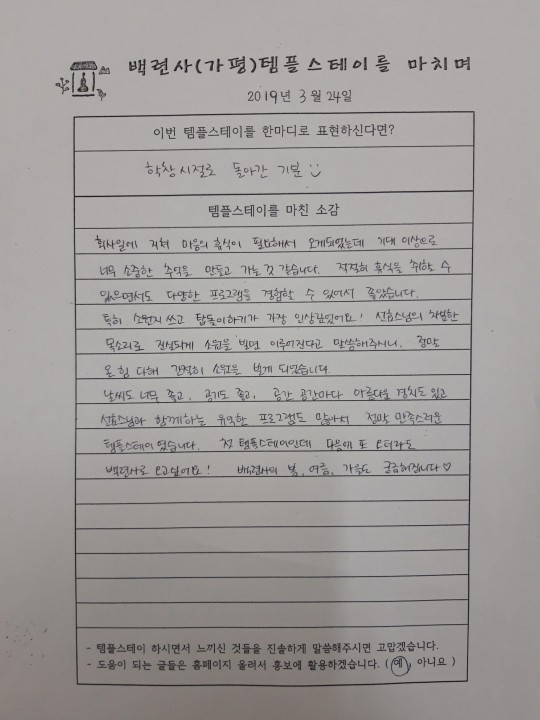 백련사(가평)템플스테이를 마치며
2019년 3월 24일
이번 템플스테이를 한마디로 표현하신다면?
학창시절로 돌아간 기분
템플스테이를 마친 소감
회사일에 지쳐 마음의 휴식이 필요해서 오게되었는데 기대 이상으로
너무 소중한 추억을 만들고 가는 것 같습니다. 적적히 휴식을 취할 수
있으면서도 다양한 프로그램을 경험할 수 있어서 좋았습니다.
특히 소원지 쓰고 탑돌이하기가 가장 인상깊었어요! 선효스님의 차분한
목소리로 진실되게 소원을 빌면 이루어진다고 말씀해주시니, 정말
온 힘 다해 간절히 소원을 빌게 되었습니다.
날씨도 너무 좋고, 공기도 좋고, 공간 공간마다 아름다운 경치도 있고
선효스님과 함께하는 유익한 프로그램도 많아서 정말 만족스러운
템플스테이 였습니다. 첫 템플스테이인데 다음에 또 오더라도
백련사로 오고싶어요! 백련사의 봄, 여름, 가을도 궁금해집니다♡
- 템플스테이 하시면서 느끼신 것들을 진솔하게 말씀해주시면 고맙겠습니다.
- 도움이 되는 글들은 홈페이지 올려서 홍보에 활용하겠습니다. ( 예, 아니요 )